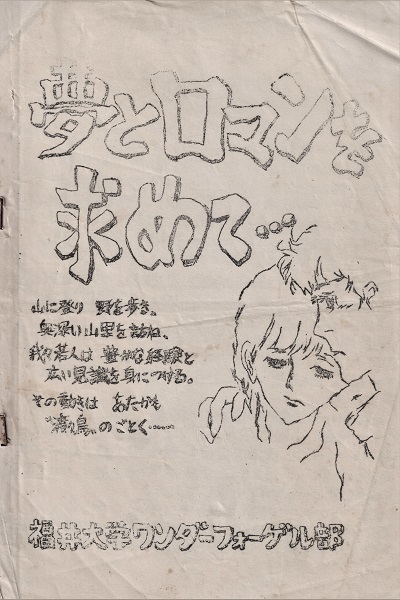 夢とロマンを
求めて…
山に登り 野を歩き、
奥深い山里を訪ね、
我々若人は 豊かな経験と
広い見識を身につける。
その動きは あたかも
“渡り鳥”のごとく……
福井大学ワンダーフォーゲル部